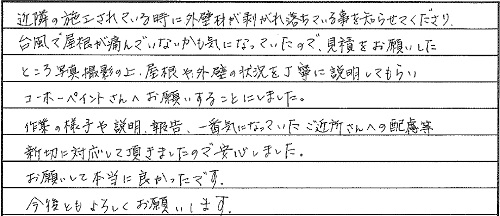 近隣の施工されている時に外壁材が剥がれ落ちている事を知らせてくださり、
台風で屋根が痛んでいないかも気になっていたので、見積をお願いした
ところ写真撮影の上、屋根や外壁の状況を丁寧に説明してもらい
コーホーペイントさんへお願いすることにしました。
作業の様子や説明、報告、一番気になっていたご近所さんへの配慮等
親切に対応して頂きましたので安心しました。
お願いして本当に良かったです。
今後ともよろしくお願いします。